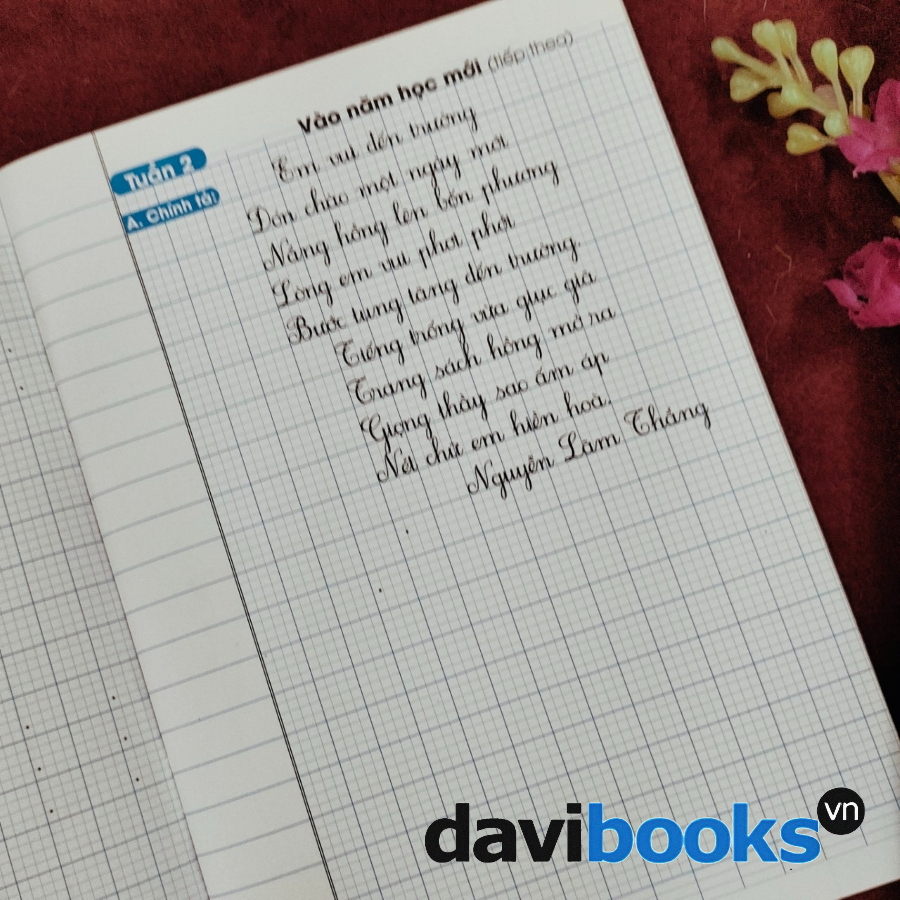 Vào năm học mới (tiếp theo)
Tuần 2
A. Chính tả:
Em vui đến trường
Đón chào một ngày mới
Nắng hồng lên bốn phương
Lòng em vui phơi phới
Bước tung tăng đến trường.
Tiếng trống vừa giục giã
Trang sách hồng mở ra
Giọng thầy sao ấm áp
Nét chữ em hiền hoà.
Nguyễn Lãm Thắng
davibooks
vn